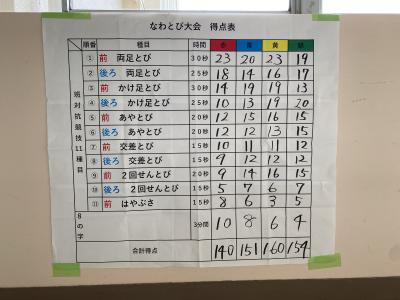 なわとび大会 得点表
順番 種目 時間 赤 青 黄 緑
班対抗競技11種目
① 前 両足とび 30秒 23 20 23 19
② 後ろ 両足とび 25秒 18 14 16 17
③ 前 かけ足とび 30秒 14 19 19 13
④ 後ろ かけ足とび 25秒 10 13 19 20
⑤ 前 あやとび 20秒 12 15 16 15
⑥ 後ろ あやとび 20秒 12 12 13 15
⑦ 前 交差とび 15秒 10 11 11 12
⑧ 後ろ 交差とび 15秒 9 12 12 12
⑨ 前 2回せんとび 20秒 9 14 16 15
⑩ 後ろ 2回せんとび 15秒 5 7 6 7
⑪ 前 はやぶさ 15秒 8 6 3 5
8の字 3分間 10 8 6 4
合計得点 140 151 160 154